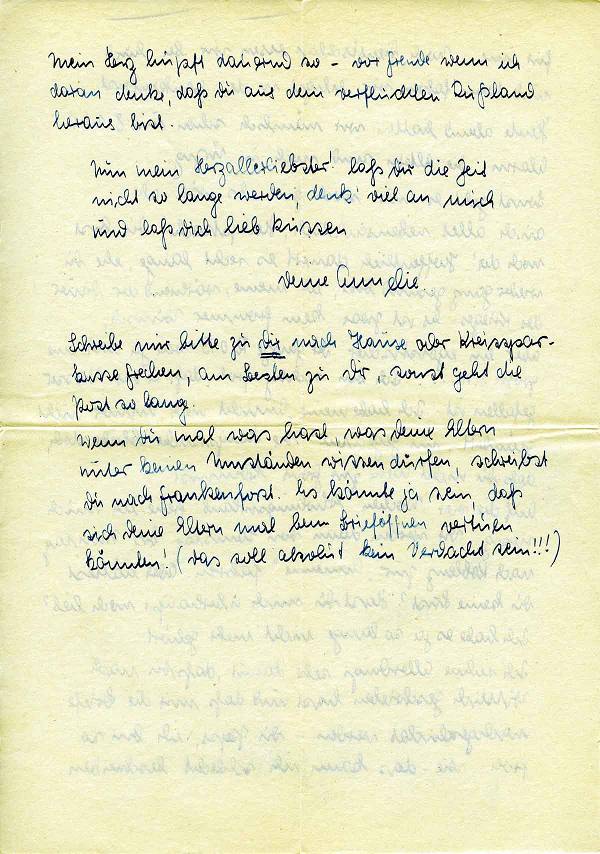 Mein Herz hüpft dauernd so – vor Freude wenn ich
daran denke, daß Du aus dem verfluchten Rußland
heraus bist.
Nun mein Herzallerliebster! laß Dir die Zeit
nicht so lange werden, denk' viel an mich
und laß Dich lieb küssen
Deine Annelie
Schreibe mir bitte zu Dir nach Hause oder Kreisspar-
kasse Frechen, am besten zu Dir, sonst geht die
Post so lang.
Wenn Du mal was hast, was Deine Eltern
unter keinen Umständen wissen dürfen, schreibst
Du nach Frankenforst. Es könnte ja sein, daß
sich Deine Eltern mal beim Brieföffnen vertuen
könnten! (Das soll absolut kein Verdacht sein!!!)